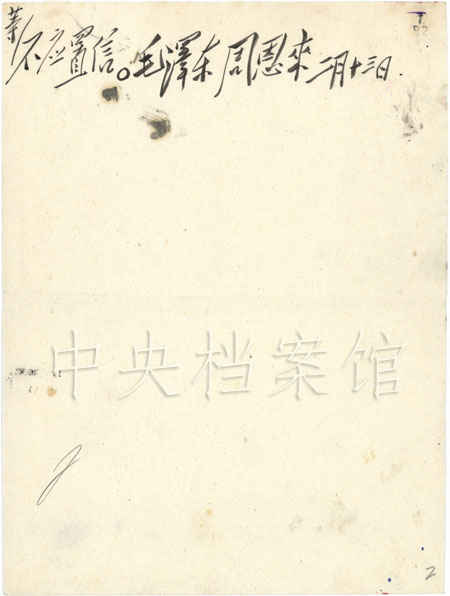 等不应置信。毛澤东 周恩來 二月十三日.
中央档案馆
2